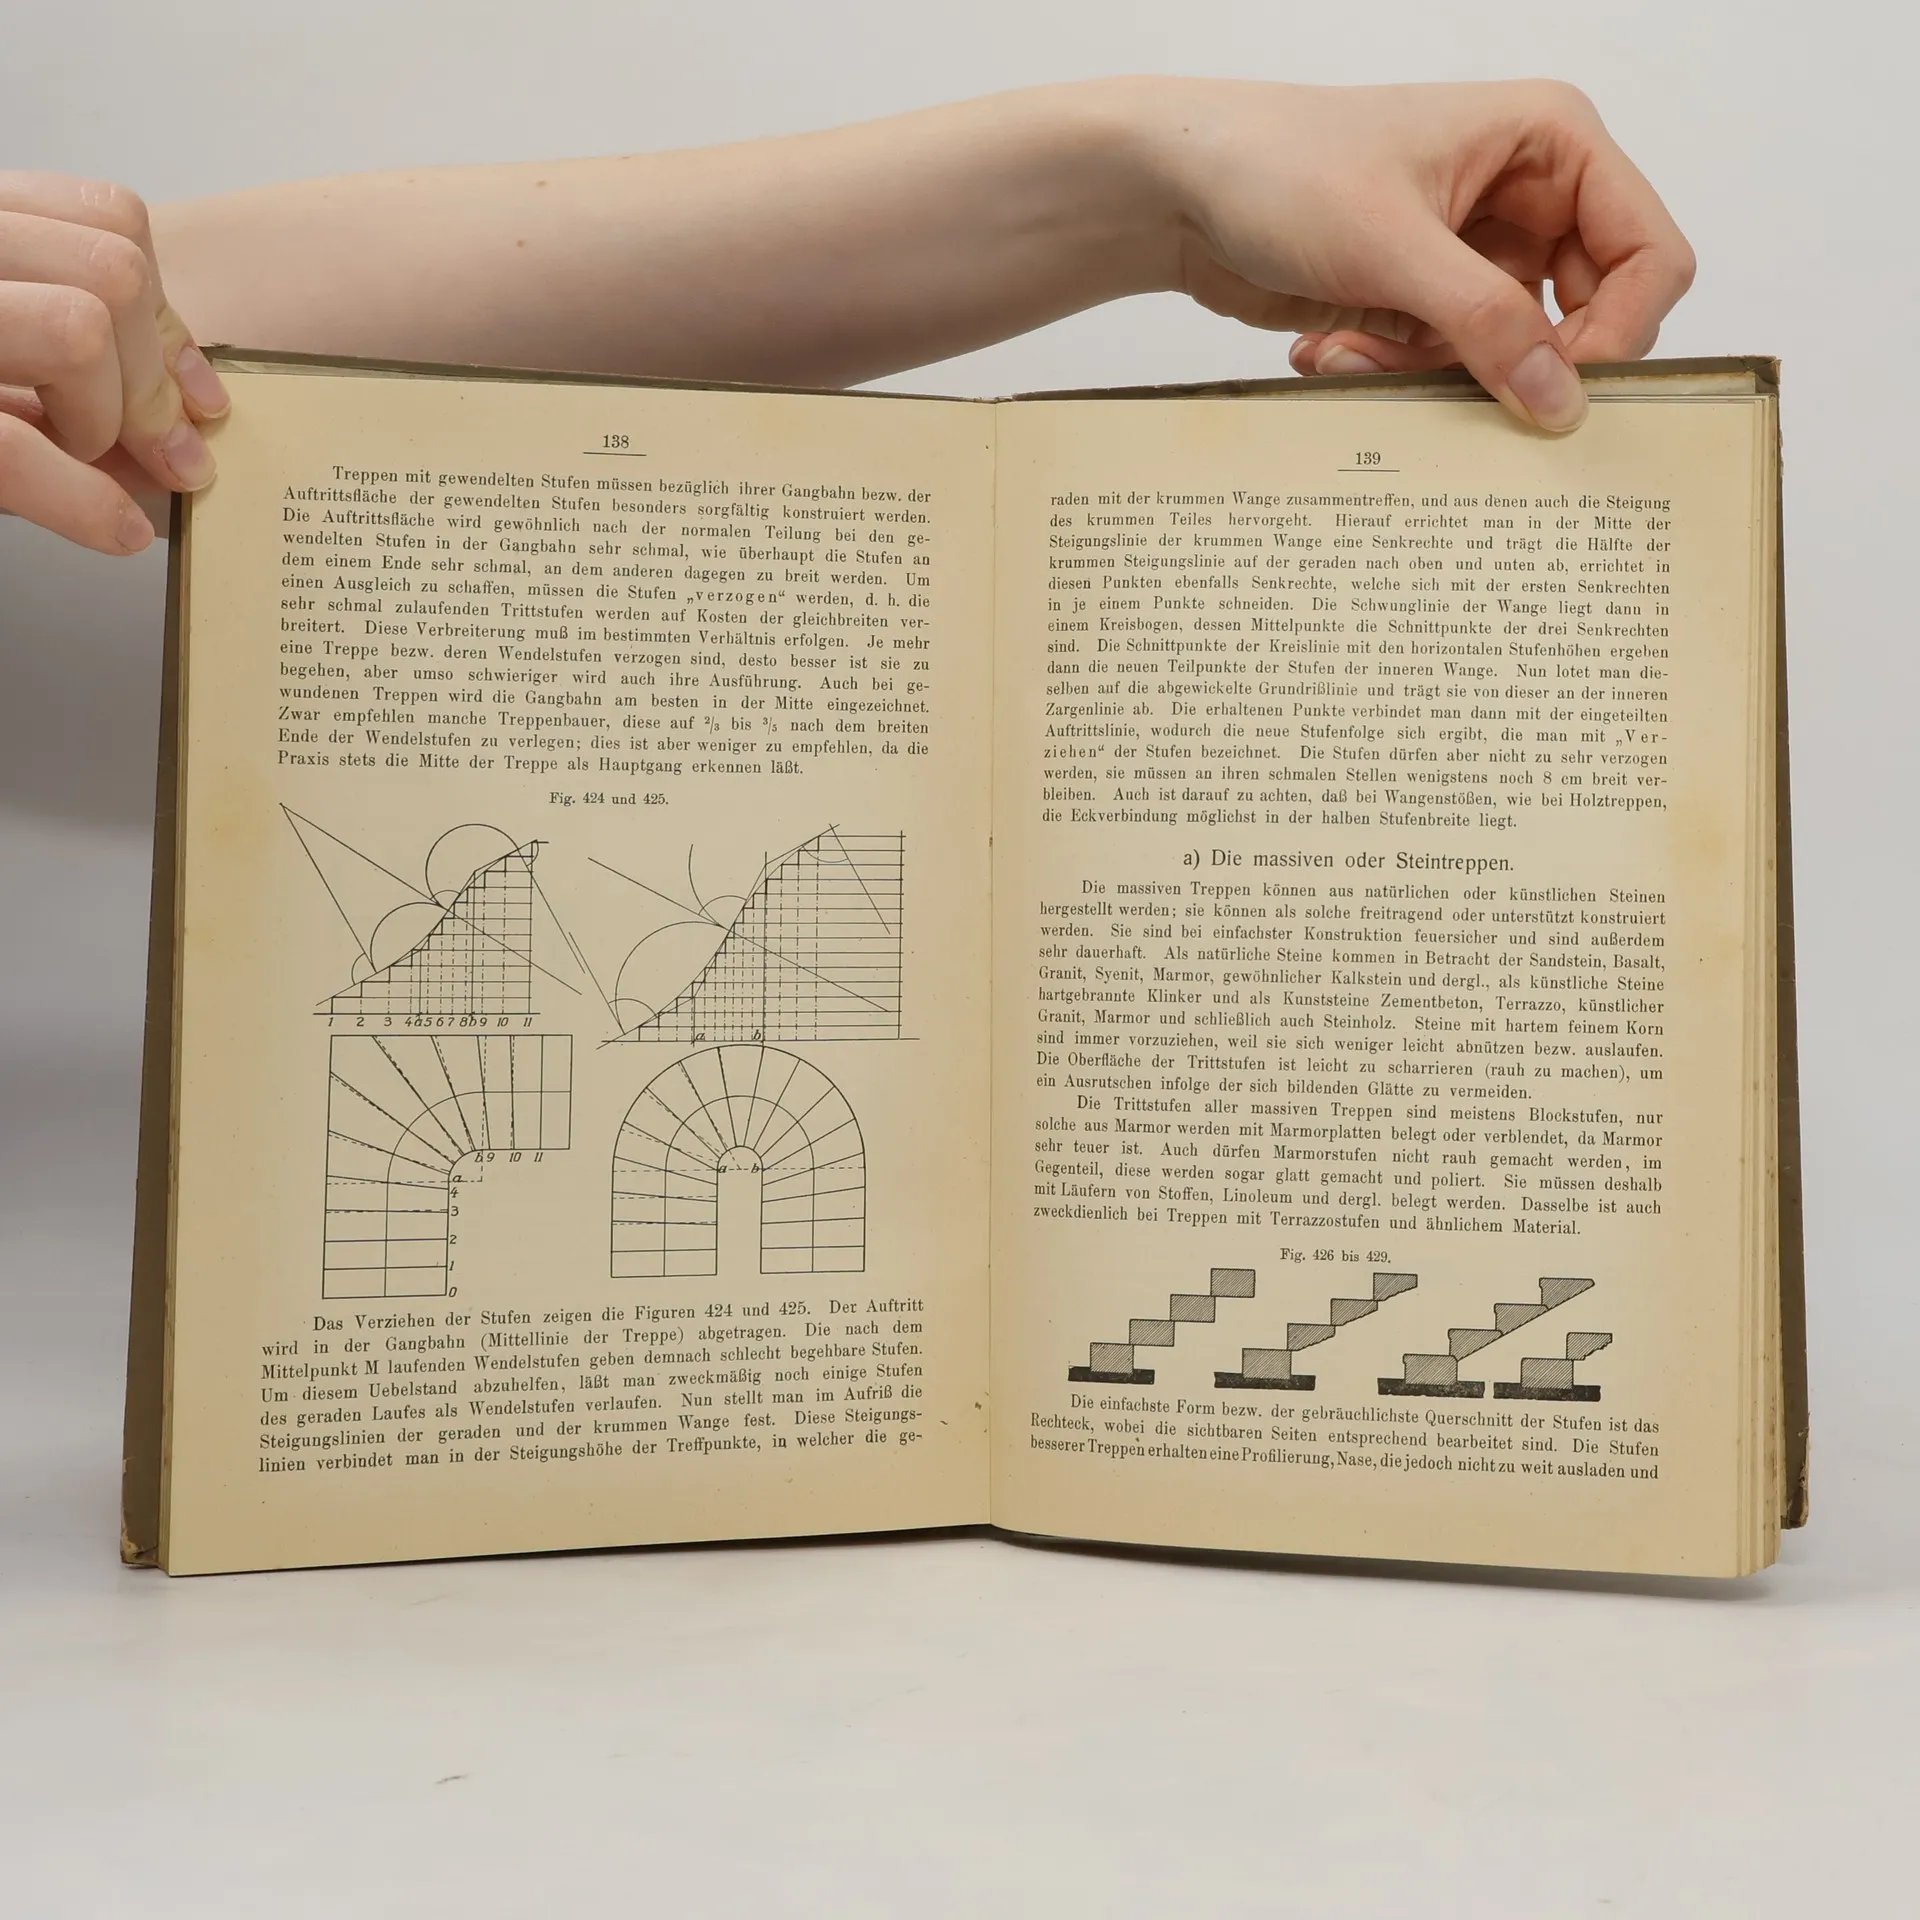 138
Treppen mit gewendelten Stufen müssen bezüglich ihrer Gangbahn bezw. der
Auftrittsfläche der gewendelten Stufen besonders sorgfältig konstruiert werden.
Die Auftrittsfläche wird gewöhnlich nach der normalen Teilung bei den ge-
wendelten Stufen in der Gangbahn sehr schmal, wie überhaupt die Stufen an
dem einem Ende sehr schmal, an dem anderen dagegen zu breit werden. Um
einen Ausgleich zu schaffen, müssen die Stufen „verzogen“ werden, d. h. die
sehr schmal zulaufenden Trittstufen werden auf Kosten der gleichbreiten ver-
breitert. Diese Verbreiterung muß im bestimmten Verhältnis erfolgen. Je mehr
eine Treppe bezw. deren Wendelstufen verzogen sind, desto besser ist sie zu
begehen, aber umso schwieriger wird auch ihre Ausführung. Auch bei ge-
wundenen Treppen wird die Gangbahn am besten in der Mitte eingezeichnet.
Zwar empfehlen manche Treppenbauer, diese auf 2/3 bis 3/5 nach dem breiten
Ende der Wendelstufen zu verlegen; dies ist aber weniger zu empfehlen, da die
Praxis stets die Mitte der Treppe als Hauptgang erkennen läßt.
Fig. 424 und 425.
1 2 3 4 a 5 6 7 8 b 9 10 11
a b
b 9 10 11
a
4
3
2
1
0
a b
Das Verziehen der Stufen zeigen die Figuren 424 und 425. Der Auftritt
wird in der Gangbahn (Mittellinie der Treppe) abgetragen. Die nach dem
Mittelpunkt M laufenden Wendelstufen geben demnach schlecht begehbare Stufen.
Um diesem Uebelstand abzuhelfen, läßt man zweckmäßig noch einige Stufen
des geraden Laufes als Wendelstufen verlaufen. Nun stellt man im Aufriß die
Steigungslinien der geraden und der krummen Wange fest. Diese Steigungs-
linien verbindet man in der Steigungshöhe der Treffpunkte, in welcher die ge-
139
raden mit der krummen Wange zusammentreffen, und aus denen auch die Steigung
des krummen Teiles hervorgeht. Hierauf errichtet man in der Mitte der
Steigungslinie der krummen Wange eine Senkrechte und trägt die Hälfte der
krummen Steigungslinie auf der geraden nach oben und unten ab, errichtet in
diesen Punkten ebenfalls Senkrechte, welche sich mit der ersten Senkrechten
in je einem Punkte schneiden. Die Schwunglinie der Wange liegt dann in
einem Kreisbogen, dessen Mittelpunkte die Schnittpunkte der drei Senkrechten
sind. Die Schnittpunkte der Kreislinie mit den horizontalen Stufenhöhen ergeben
dann die neuen Teilpunkte der Stufen der inneren Wange. Nun lotet man die-
selben auf die abgewickelte Grundrißlinie und trägt sie von dieser an der inneren
Zargenlinie ab. Die erhaltenen Punkte verbindet man dann mit der eingeteilten
Auftrittslinie, wodurch die neue Stufenfolge sich ergibt, die man mit „Ver-
ziehen“ der Stufen bezeichnet. Die Stufen dürfen aber nicht zu sehr verzogen
werden, sie müssen an ihren schmalen Stellen wenigstens noch 8 cm breit ver-
bleiben. Auch ist darauf zu achten, daß bei Wangenstößen, wie bei Holztreppen,
die Eckverbindung möglichst in der halben Stufenbreite liegt.
a) Die massiven oder Steintreppen.
Die massiven Treppen können aus natürlichen oder künstlichen Steinen
hergestellt werden; sie können als solche freitragend oder unterstützt konstruiert
werden. Sie sind bei einfachster Konstruktion feuersicher und sind außerdem
sehr dauerhaft. Als natürliche Steine kommen in Betracht der Sandstein, Basalt,
Granit, Syenit, Marmor, gewöhnlicher Kalkstein und dergl., als künstliche Steine
hartgebrannte Klinker und als Kunststeine Zementbeton, Terrazzo, künstlicher
Granit, Marmor und schließlich auch Steinholz. Steine mit hartem feinem Korn
sind immer vorzuziehen, weil sie sich weniger leicht abnützen bezw. auslaufen.
Die Oberfläche der Trittstufen ist leicht zu scharrieren (rauh zu machen), um
ein Ausrutschen infolge der sich bildenden Glätte zu vermeiden.
Die Trittstufen aller massiven Treppen sind meistens Blockstufen, nur
solche aus Marmor werden mit Marmorplatten belegt oder verblendet, da Marmor
sehr teuer ist. Auch dürfen Marmorstufen nicht rauh gemacht werden, im
Gegenteil, diese werden sogar glatt gemacht und poliert. Sie müssen deshalb
mit Läufern von Stoffen, Linoleum und dergl. belegt werden. Dasselbe ist auch
zweckdienlich bei Treppen mit Terrazzostufen und ähnlichem Material.
Fig. 426 bis 429.
Die einfachste Form bezw. der gebräuchlichste Querschnitt der Stufen ist das
Rechteck, wobei die sichtbaren Seiten entsprechend bearbeitet sind. Die Stufen
besserer Treppen erhalten eine Profilierung, Nase, die jedoch nicht zu weit ausladen und